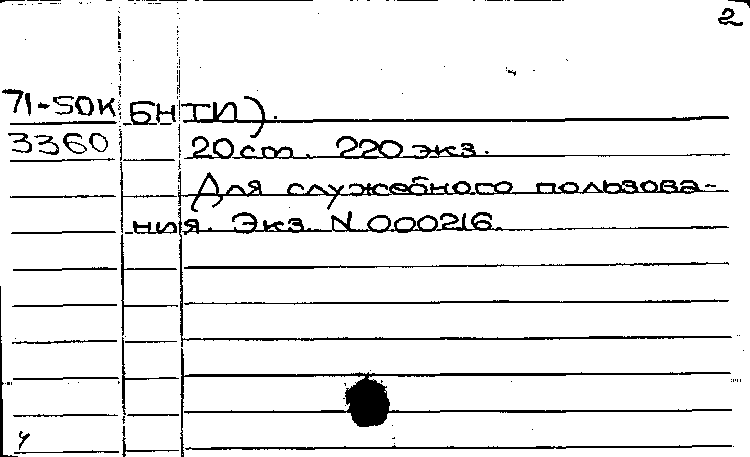 2
71-50К БНТИ).
3360 20 ст. 220 экз.
Для служебного пользова-
ния. Экз. N 000216.